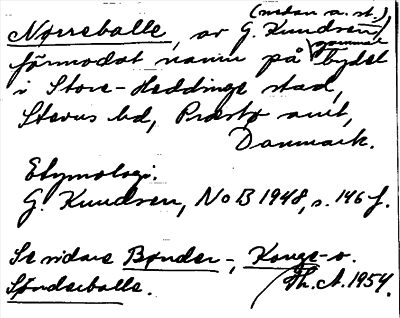 (nedan a. st.)
Nørreballe, av G. Knudsen
förmodat namn på gammal bydel
i Store-Heddinge stad,
Stevns hd, Præstø amt,
Danmark.
Etymologi:
G. Knudsen, NoB 1948, s. 146 f.
Se vidare Bønder-, Konge- o.
Sønderballe. Th. A. 1954.